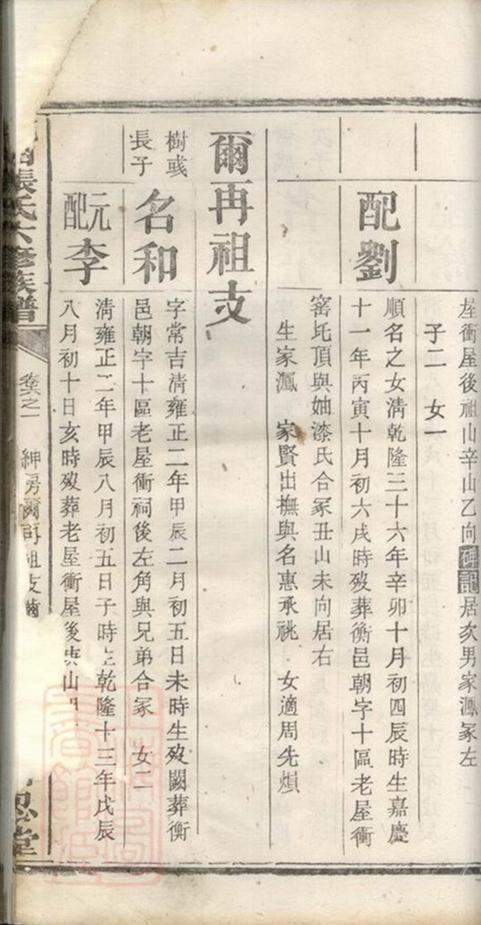 垤衝屋後祖山辛山乙向碑記居次男家澷冢左
子二 女一
配劉
順名之女清乾隆三十六年辛卯十月初四辰時生嘉慶
十一年丙寅十月初六戌時歿葬衡邑朝字十區老屋衝
窰坵頂與妯漆氏合冢丑山未向居右
生家澷 家賢出撫與名惠承祧 女適周先熉
爾再祖支
樹彧
長子
名和
字常吉清雍正二年甲辰二月初五日未時生歿闕葬衡
邑朝字十區老屋衝祠後左角與兄弟合冢 女二
元
配
李
清雍正二年甲辰八月初五日子時生乾隆十三年戊辰
八月初十日亥時歿葬老屋衝屋後
張氏六修族譜
卷六之一
紳勇爾再祖支
堂